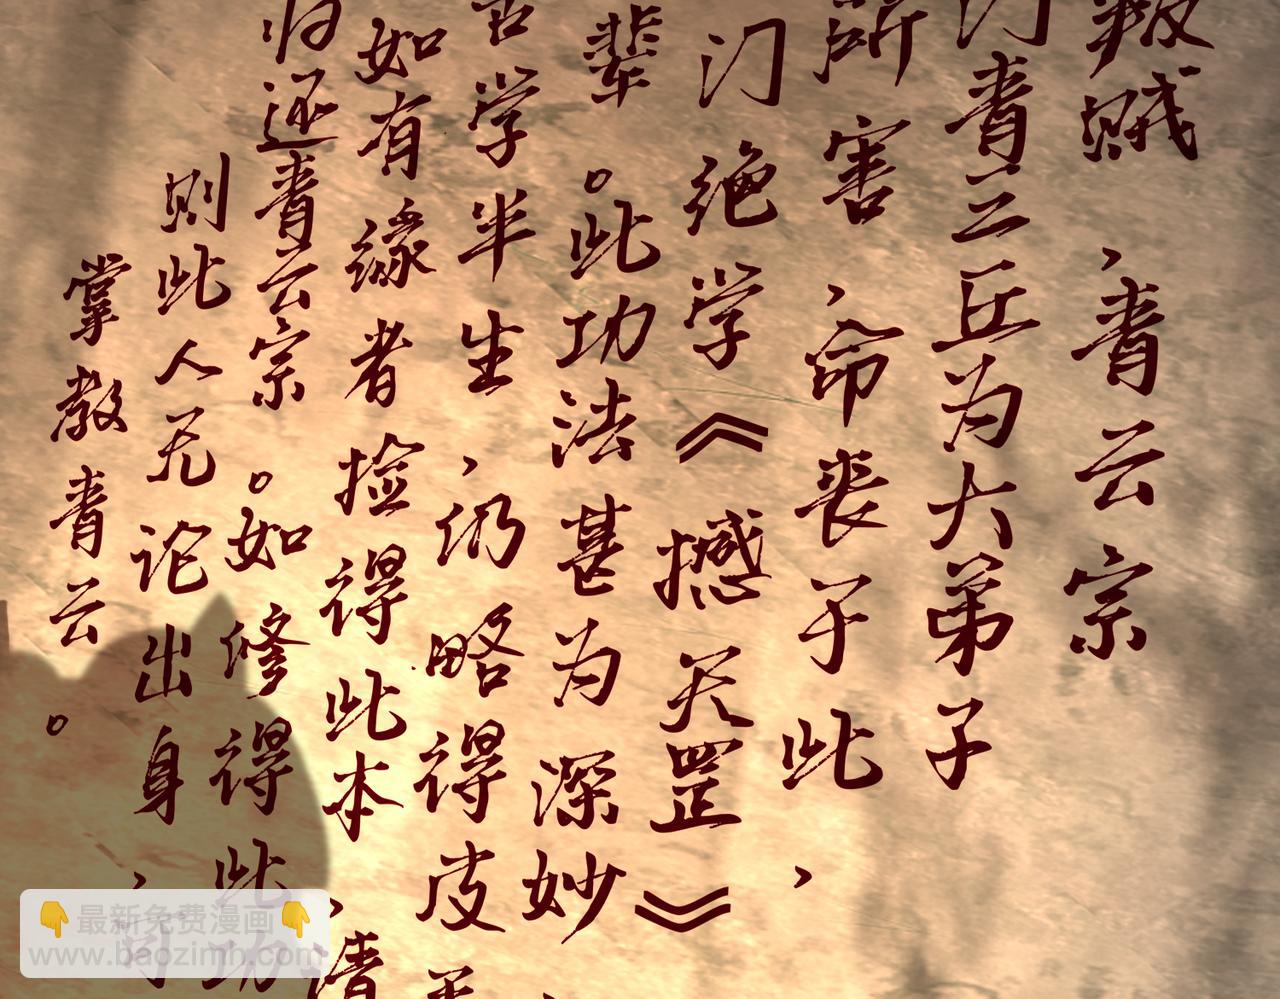 叛贼，青云宗
门青云丘为大弟子
所害，命丧于此，
门绝学《撼天罡》
辈。此功法甚为深妙
吾学半生，仍略得皮
如有缘者捡得此本，请
归还青云宗。如修得此功
则此人无论出身，
掌教青云。
👇最新免费漫画👇
www.baozimn.com